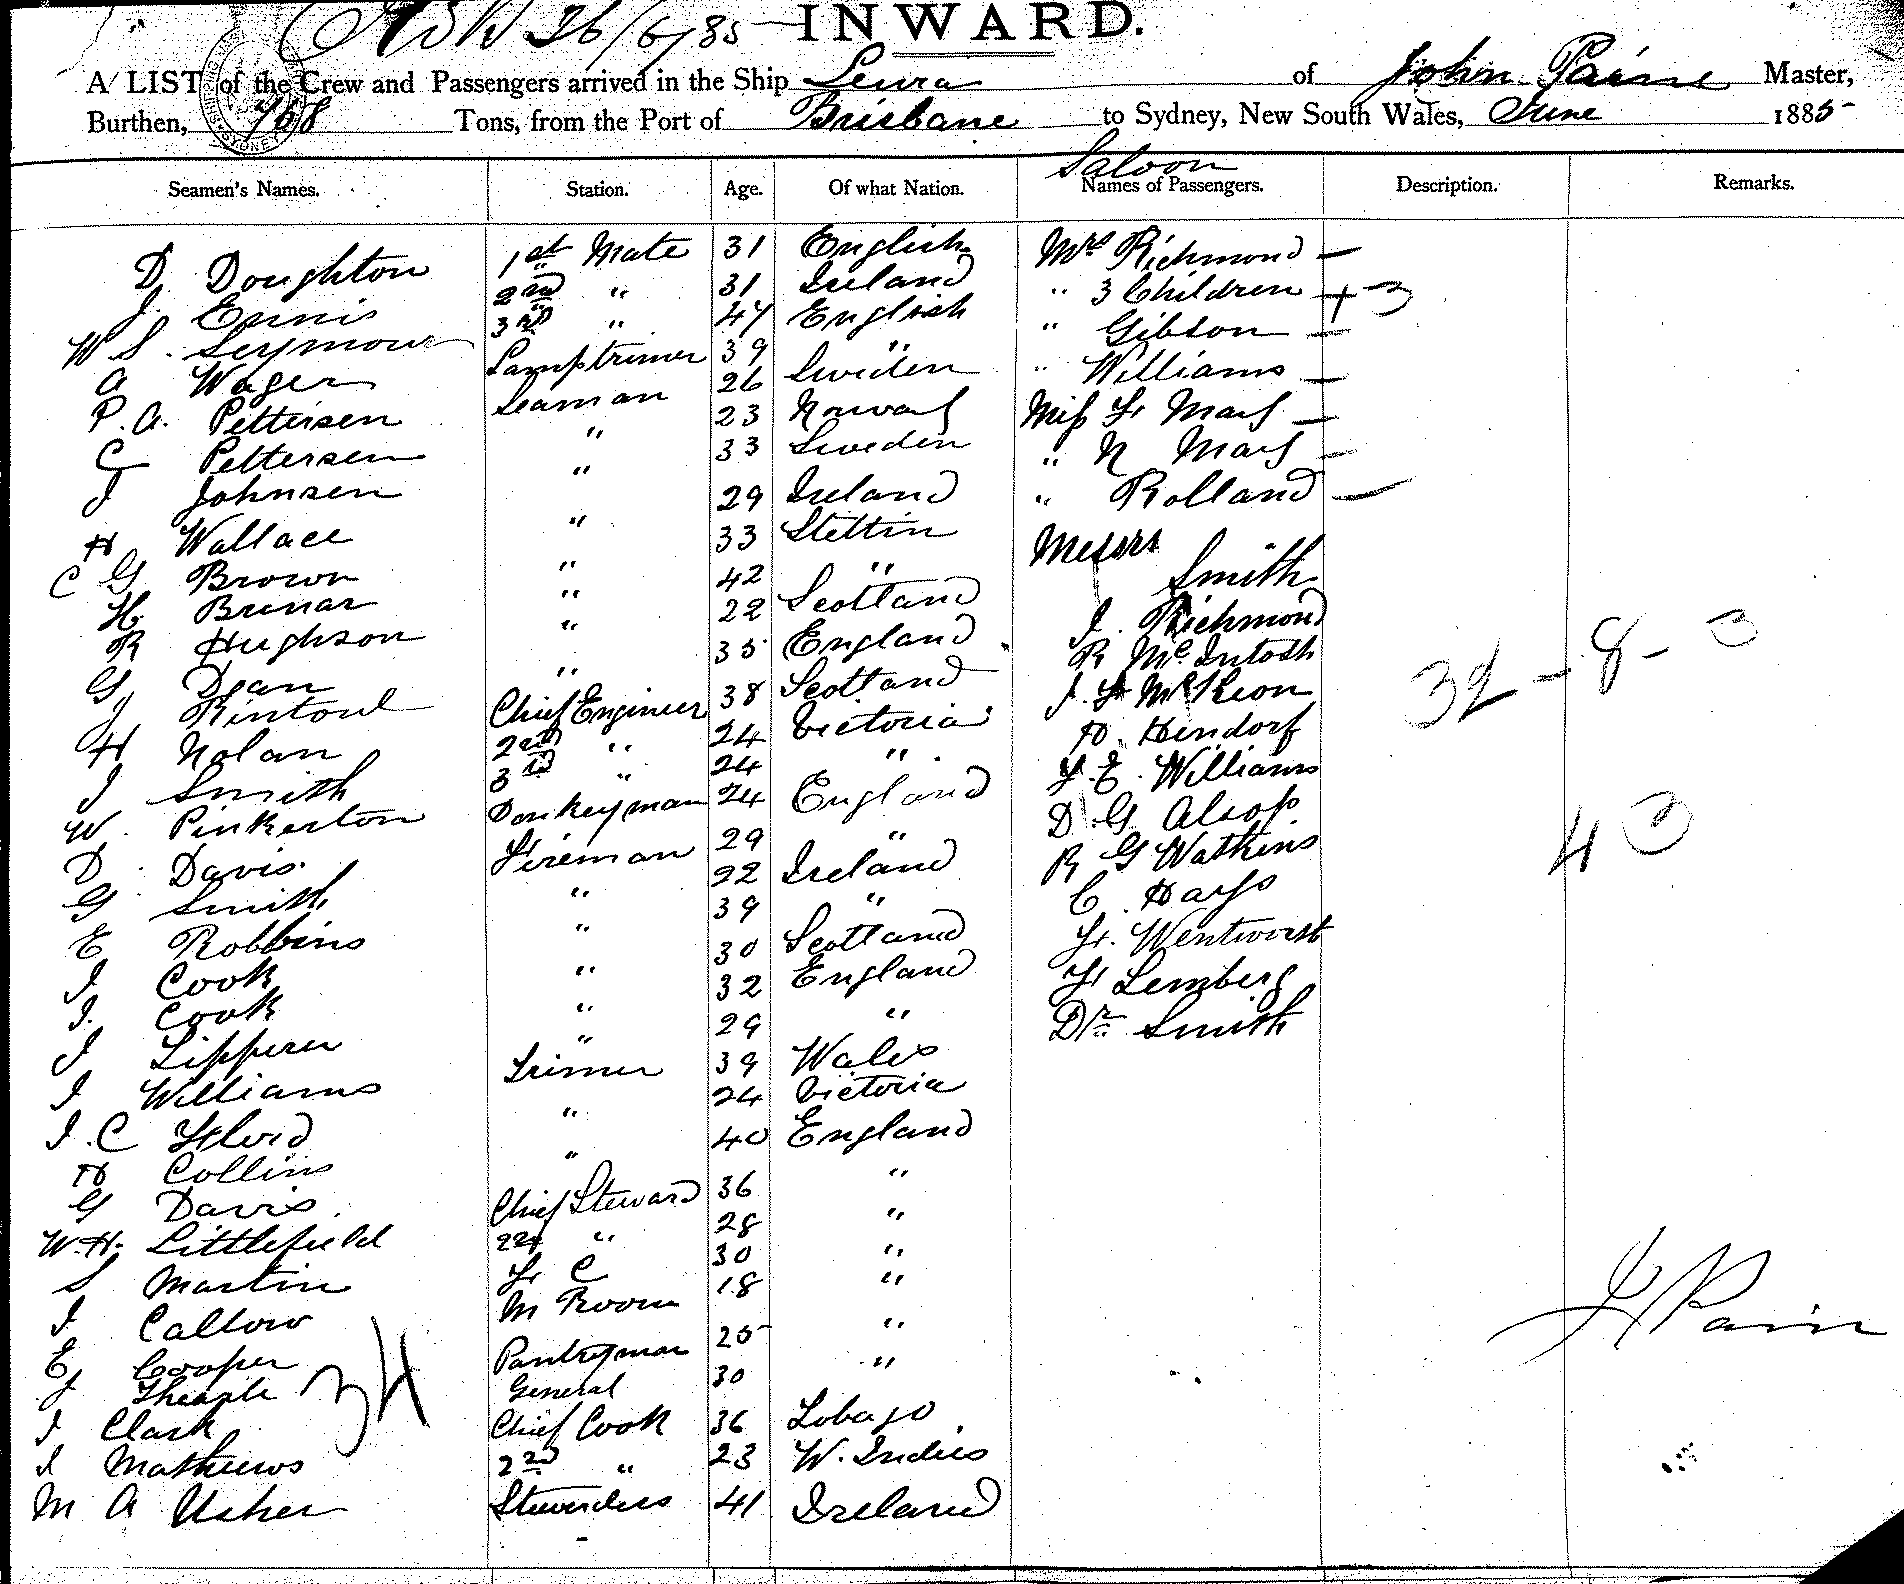 26/6/85 INWARD.
A LIST of the Crew and Passengers arrived in the Ship Leura of John Paine Master,
Burthen, 768 Tons, from the Port of Brisbane to Sydney, New South Wales, June 1885
Saloon
Seamen's Names. Station. Age. Of what Nation. Names of Passengers. Description. Remarks.
D Doughton 1st Mate 31 English Mrs Richmond —
J. Ennis 2nd " 31 Ireland " 3 Children + 3
W S. Seymour 3rd " 47 English " Gibson —
A Wager Lamptrimer 39 " " Williams —
P. A. Pettersen Seaman 26 Sweden Miss F. May —
C Pettersen " 23 Norway " N May —
J Johnsen " 33 Sweden " Rolland —
H Wallace " 29 Ireland Messrs
C G Brown " 33 Stettin Smith
H. Brenar " 42 " J. Richmond
R Hughson " 22 Scotland R McIntosh
G Dean " 35 England J. F McKeon
J Rintoul Chief Engineer 38 Scotland H. Hindorf
H Nolan 2nd " 24 Victoria F. E. Williams
J Smith 3rd " 24 " D. G Alsop
W. Pinkerton Donkeyman 24 England R G Watkins
D. Davis Fireman 29 " C. Hays
G Smith " 22 Ireland F. Wentworth
E Robbins " 39 " F Lemberg
J Cook " 30 Scotland Dr Smith
J. Cook " 32 England
J Lipperer " 29 "
J Williams Trimer 39 Wales
J. C Flood " 24 Victoria
H Collins " 40 England
G Davis Chief Steward 36 "
W. H. Littlefield 2nd " 28 "
S Martin F C 30 "
J Callow M Room 18 "
E Cooper Pantryman 25 "
J Theaple General 30 "
J Clark Chief Cook 36 Tobago
J Mathews 2nd " 23 W. Indies
M A Usher Stewerdess 41 Ireland
32 - 8 - 3
43
34
J Pain